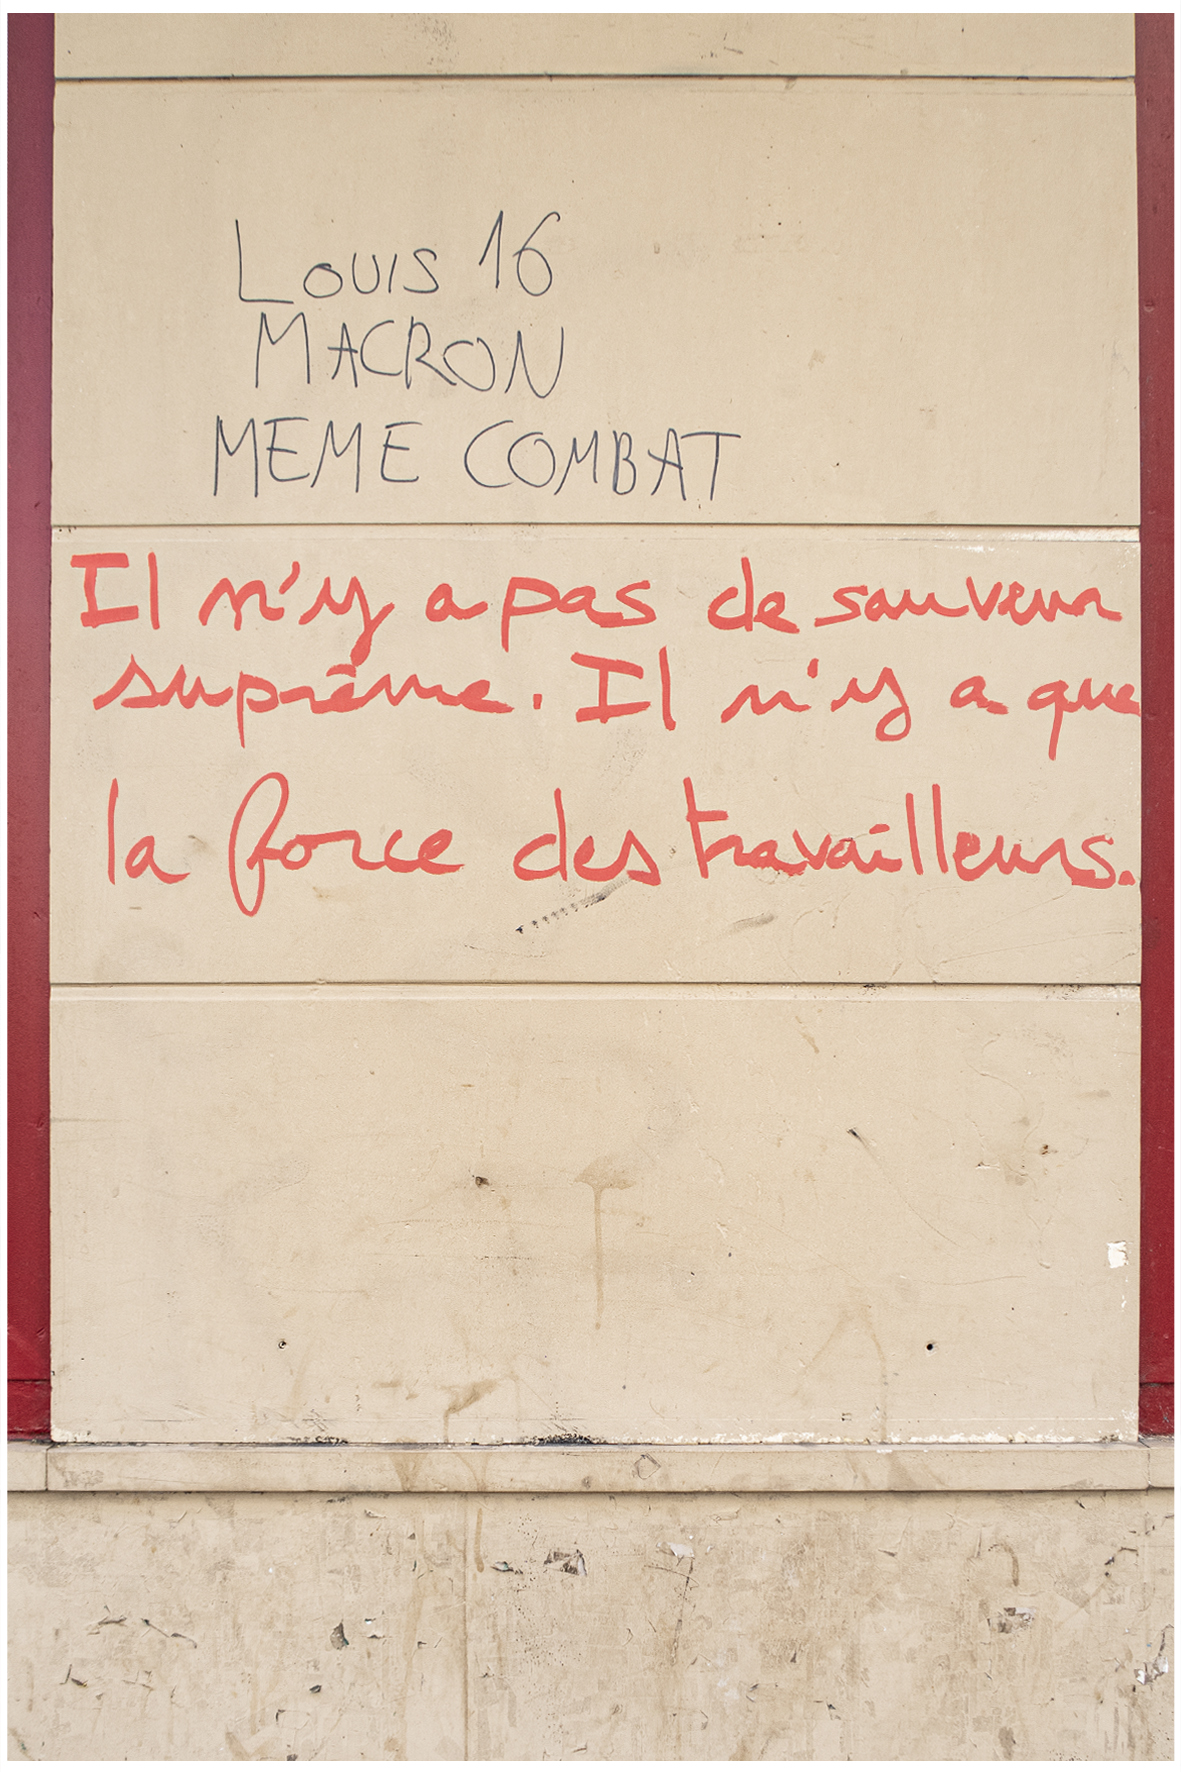 LOUIS 16
MACRON
MEME COMBAT
Il n'y a pas de sauveur
suprême. Il n'y a que
la force des travailleurs.